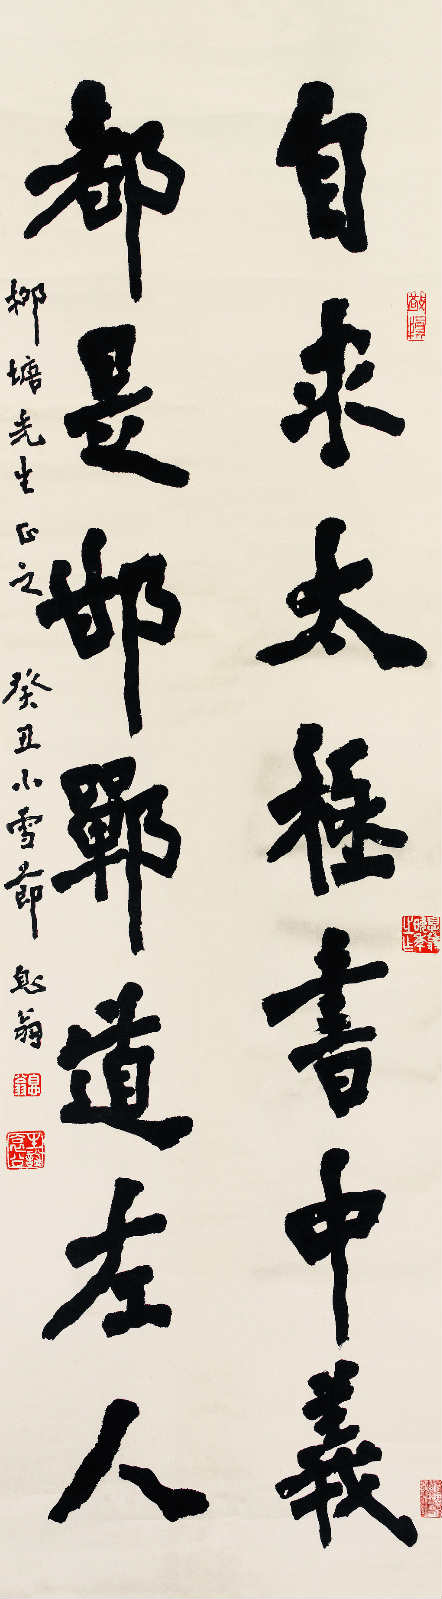 自求太極書中義
都是邯鄲道左人
柳塘先生正之 癸丑小雪節 息翁